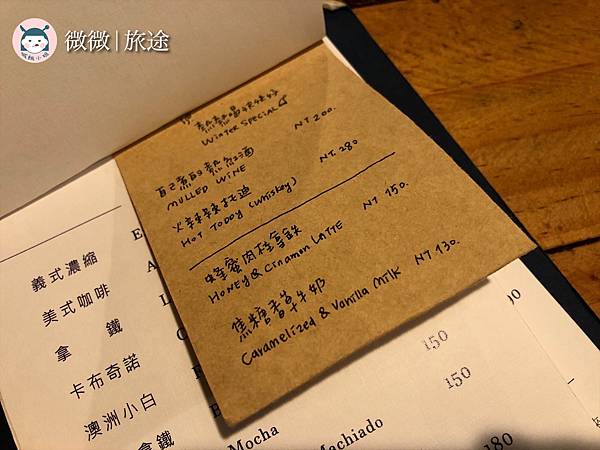 微微|旅途
熱熱喝快快好
WINTER SPECIAL
自己煮的熱紅酒 NT 200.
MULLED WINE
火辣辣托迪 NT. 280
HOT TODDY (Whiskey)
蜂蜜肉桂拿鐵 NT 150.
HONEY & Cinamon LATTE
焦糖香草牛奶 NT 130.
Caramelized & Vanilla Milk
義式濃縮
美式咖啡
拿鐵
卡布奇諾 150
澳洲小白 150
拿鐵
Mocha
Machiado
180